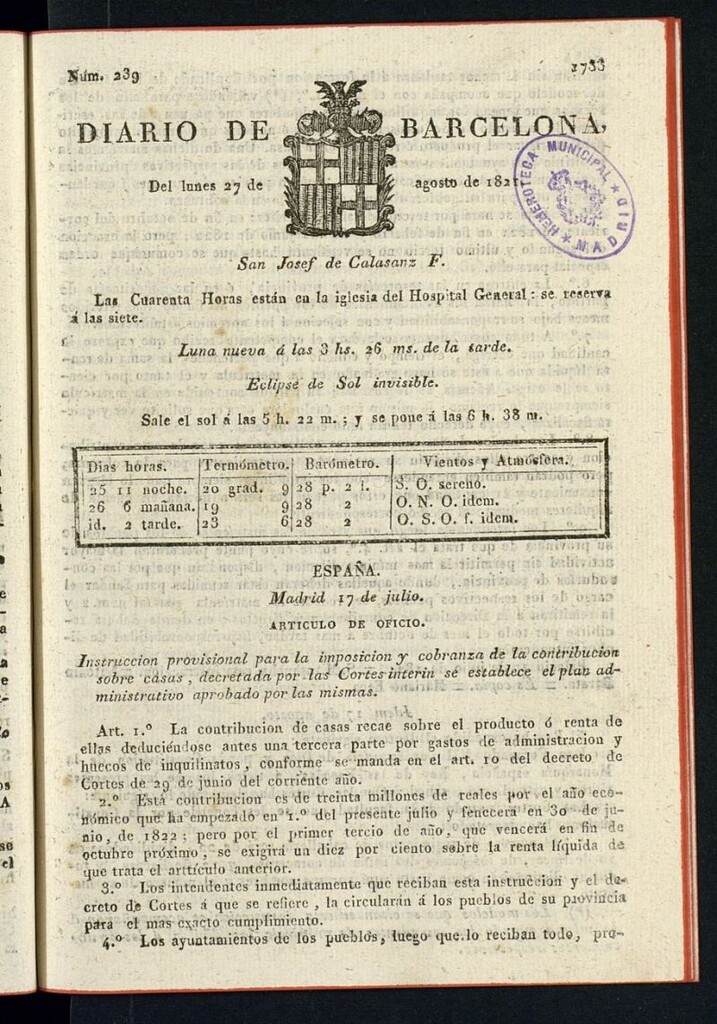 Núm. 239
1733
DIARIO DE BARCELONA,
Del lunes 27 de agosto de 1821.
HEMEROTECA MUNICIPAL ★ MADRID ★
San Josef de Calasanz F.
Las Cuarenta Horas están en la iglesia del Hospital General: se reserva
á las siete.
Luna nueva á las 3 hs. 26 ms. de la tarde.
Eclipse de Sol invisible.
Sale el sol á las 5 h. 22 m.; y se pone á las 6 h. 38 m.
Dias horas. Termómetro. Barómetro. Vientos y Atmósfera.
25 11 noche. 20 grad. 9 28 p. 2 l. S. O. sereno.
26 6 mañana. 19 9 28 2 O. N. O. idem.
id. 2 tarde. 23 6 28 2 O. S. O. f. idem.
ESPAÑA.
Madrid 17 de julio.
ARTICULO DE OFICIO.
Instruccion provisional para la imposicion y cobranza de la contribucion
sobre casas, decretada por las Cortes interin se establece el plan ad-
ministrativo aprobado por las mismas.
Art. 1.º La contribucion de casas recae sobre el producto ó renta de
ellas deduciéndose antes una tercera parte por gastos de administracion y
huecos de inquilinatos, conforme se manda en el art. 10 del decreto de
Cortes de 29 de junio del corriente año.
2.º Esta contribucion es de treinta millones de reales por el año eco-
nómico que ha empezado en 1.º del presente julio y fenecerá en 30 de ju-
nio, de 1822; pero por el primer tercio de año, que vencerá en fin de
octubre próximo, se exigirá un diez por ciento sobre la renta líquida de
que trata el artículo anterior.
3.º Los intendentes inmediatamente que reciban esta instruccion y el de-
creto de Cortes á que se refiere, la circularán á los pueblos de su provincia
para el mas exacto cumplimiento.
4.º Los ayuntamientos de los pueblos, luego que lo reciban todo, pro-